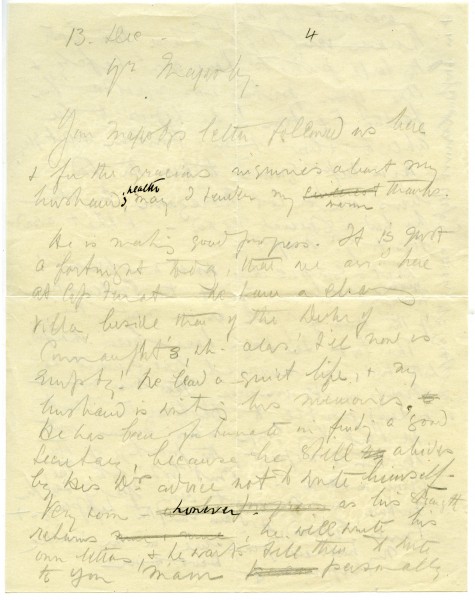 13. Dec.
4
Yr Majesty.
Your Majesty's letter followed us here
& for the gracious inquiries about my
husband's health may I tender my thanks.
He is making good progress. It is just
a fortnight today, that we arrd here
at Cap Ferrat. We have a charming
villa, beside that of the Duke of
Connaught's, wh. alas! till now is
empty! We lead a quiet life, & my
husband is writing his memories.
He has been fortunate in finding a good
secretary, because he still abides
by his Drs advice not to write himself.
Very soon - however - as his strength
returns he will write his
own letters, & he waits till then to write
to you Maam personally.